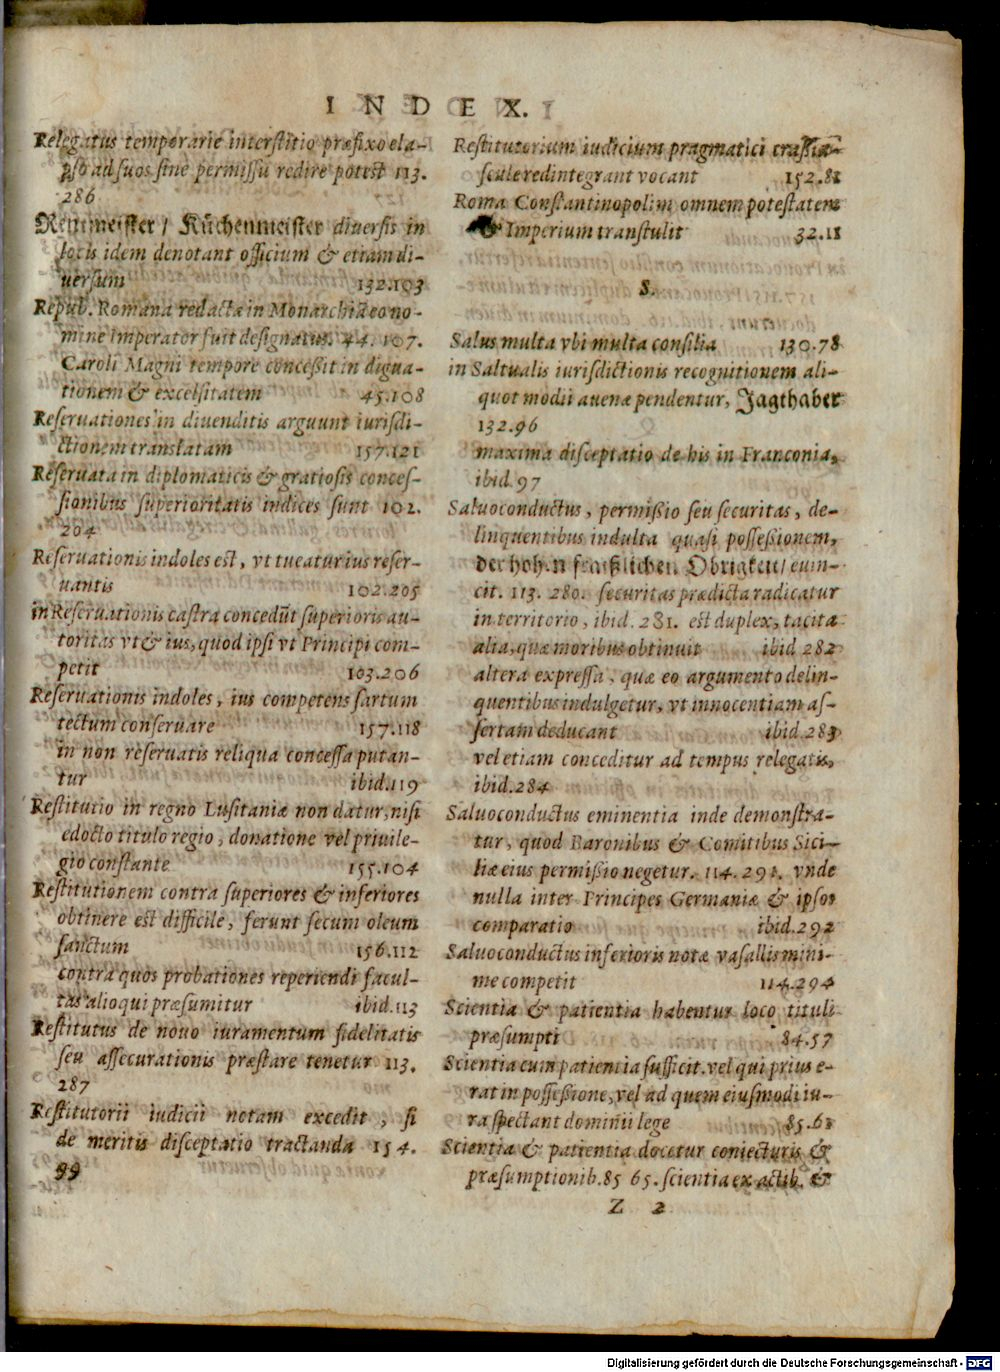 INDEX.
Relegatus temporarie interstitio præfixo ela-
pso ad suos sine permissu redire potest 113.
286
Rentmeister / Küchenmeister diuersis in
locis idem denotant officium & etiam di-
uersum 132.103
Repub. Romana redacta in Monarchiã eo no-
mine imperator fuit designatus. 44. 107.
Caroli Magni tempore conceßit in digua-
tionem & excelsitatem 45.108
Reseruationes in diuenditis arguunt iurisdi-
ctionem translatam 157.121
Reseruata in diplomaticis & gratiosis conces-
sionibus superioritatis indices sunt 102.
204
Reseruationis indoles est, vt tueatur ius reser-
uantis 102.205
in Reseruationis castra concedũt superioris au-
toritas vt & ius, quod ipsi vt Principi com-
petit 103.206
Reseruationis indoles, ius competens sartum
tectum conseruare 157.118
in non reseruatis reliqua concessa putan-
tur ibid.119
Restitutio in regno Lusitaniæ non datur, nisi
edocto titulo regio, donatione vel priuile-
gio constante 155.104
Restitutionem contra superiores & inferiores
obtinere est difficile, ferunt secum oleum
sanctum 156.112
contra quos probationes reperiendi facul-
tas alioqui præsumitur ibid.113
Restitutus de nouo iuramentum fidelitatis
seu assecurationis præstare tenetur 113.
287
Restitutorii iudicii notam excedit, si
de meritis disceptatio tractanda 154.
99
Restitutorium iudicium pragmatici crassia-
scule redintegrant vocant 152.81
Roma Constantinopolim omnem potestatem
& Imperium transtulit 32.11
S.
Salus multa vbi multa consilia 130.78
in Saltualis iurisdictionis recognitionem ali-
quot modii auenæ pendentur, Jagthaber
132.96
maxima disceptatio de his in Franconia,
ibid.97
Saluoconductus, permißio seu securitas, de-
linquentibus indulta quasi possessionem,
der hohen fraißlichen Obrigkeit / euin-
cit. 113. 280. securitas prædicta radicatur
in territorio, ibid. 281. est duplex, tacita
alia, quæ moribus obtinuit ibid 282
altera expressa, quæ eo argumento delin-
quentibus indulgetur, vt innocentiam as-
sertam deducant ibid.283
vel etiam conceditur ad tempus relegatis,
ibid.284
Saluoconductus eminentia inde demonstra-
tur, quod Baronibus & Comitibus Sici-
liæ eius permißio negetur. 114. 291. vnde
nulla inter Principes Germaniæ & ipsos
comparatio ibid.292
Saluoconductus inferioris notæ vasallis mini-
me competit 114.294
Scientia & patientia habentur loco tituli
præsumpti 84.57
Scientia cum patientia sufficit. vel qui prius e-
rat in possessione, vel ad quem eiusmodi iu-
ra spectant dominii lege 85.61
Scientia & patientia docetur coniecturis &
præsumptionib. 85 65. scientia ex actib. &
Z 2
Digitalisierung gefördert durch die Deutsche Forschungsgemeinschaft - DFG